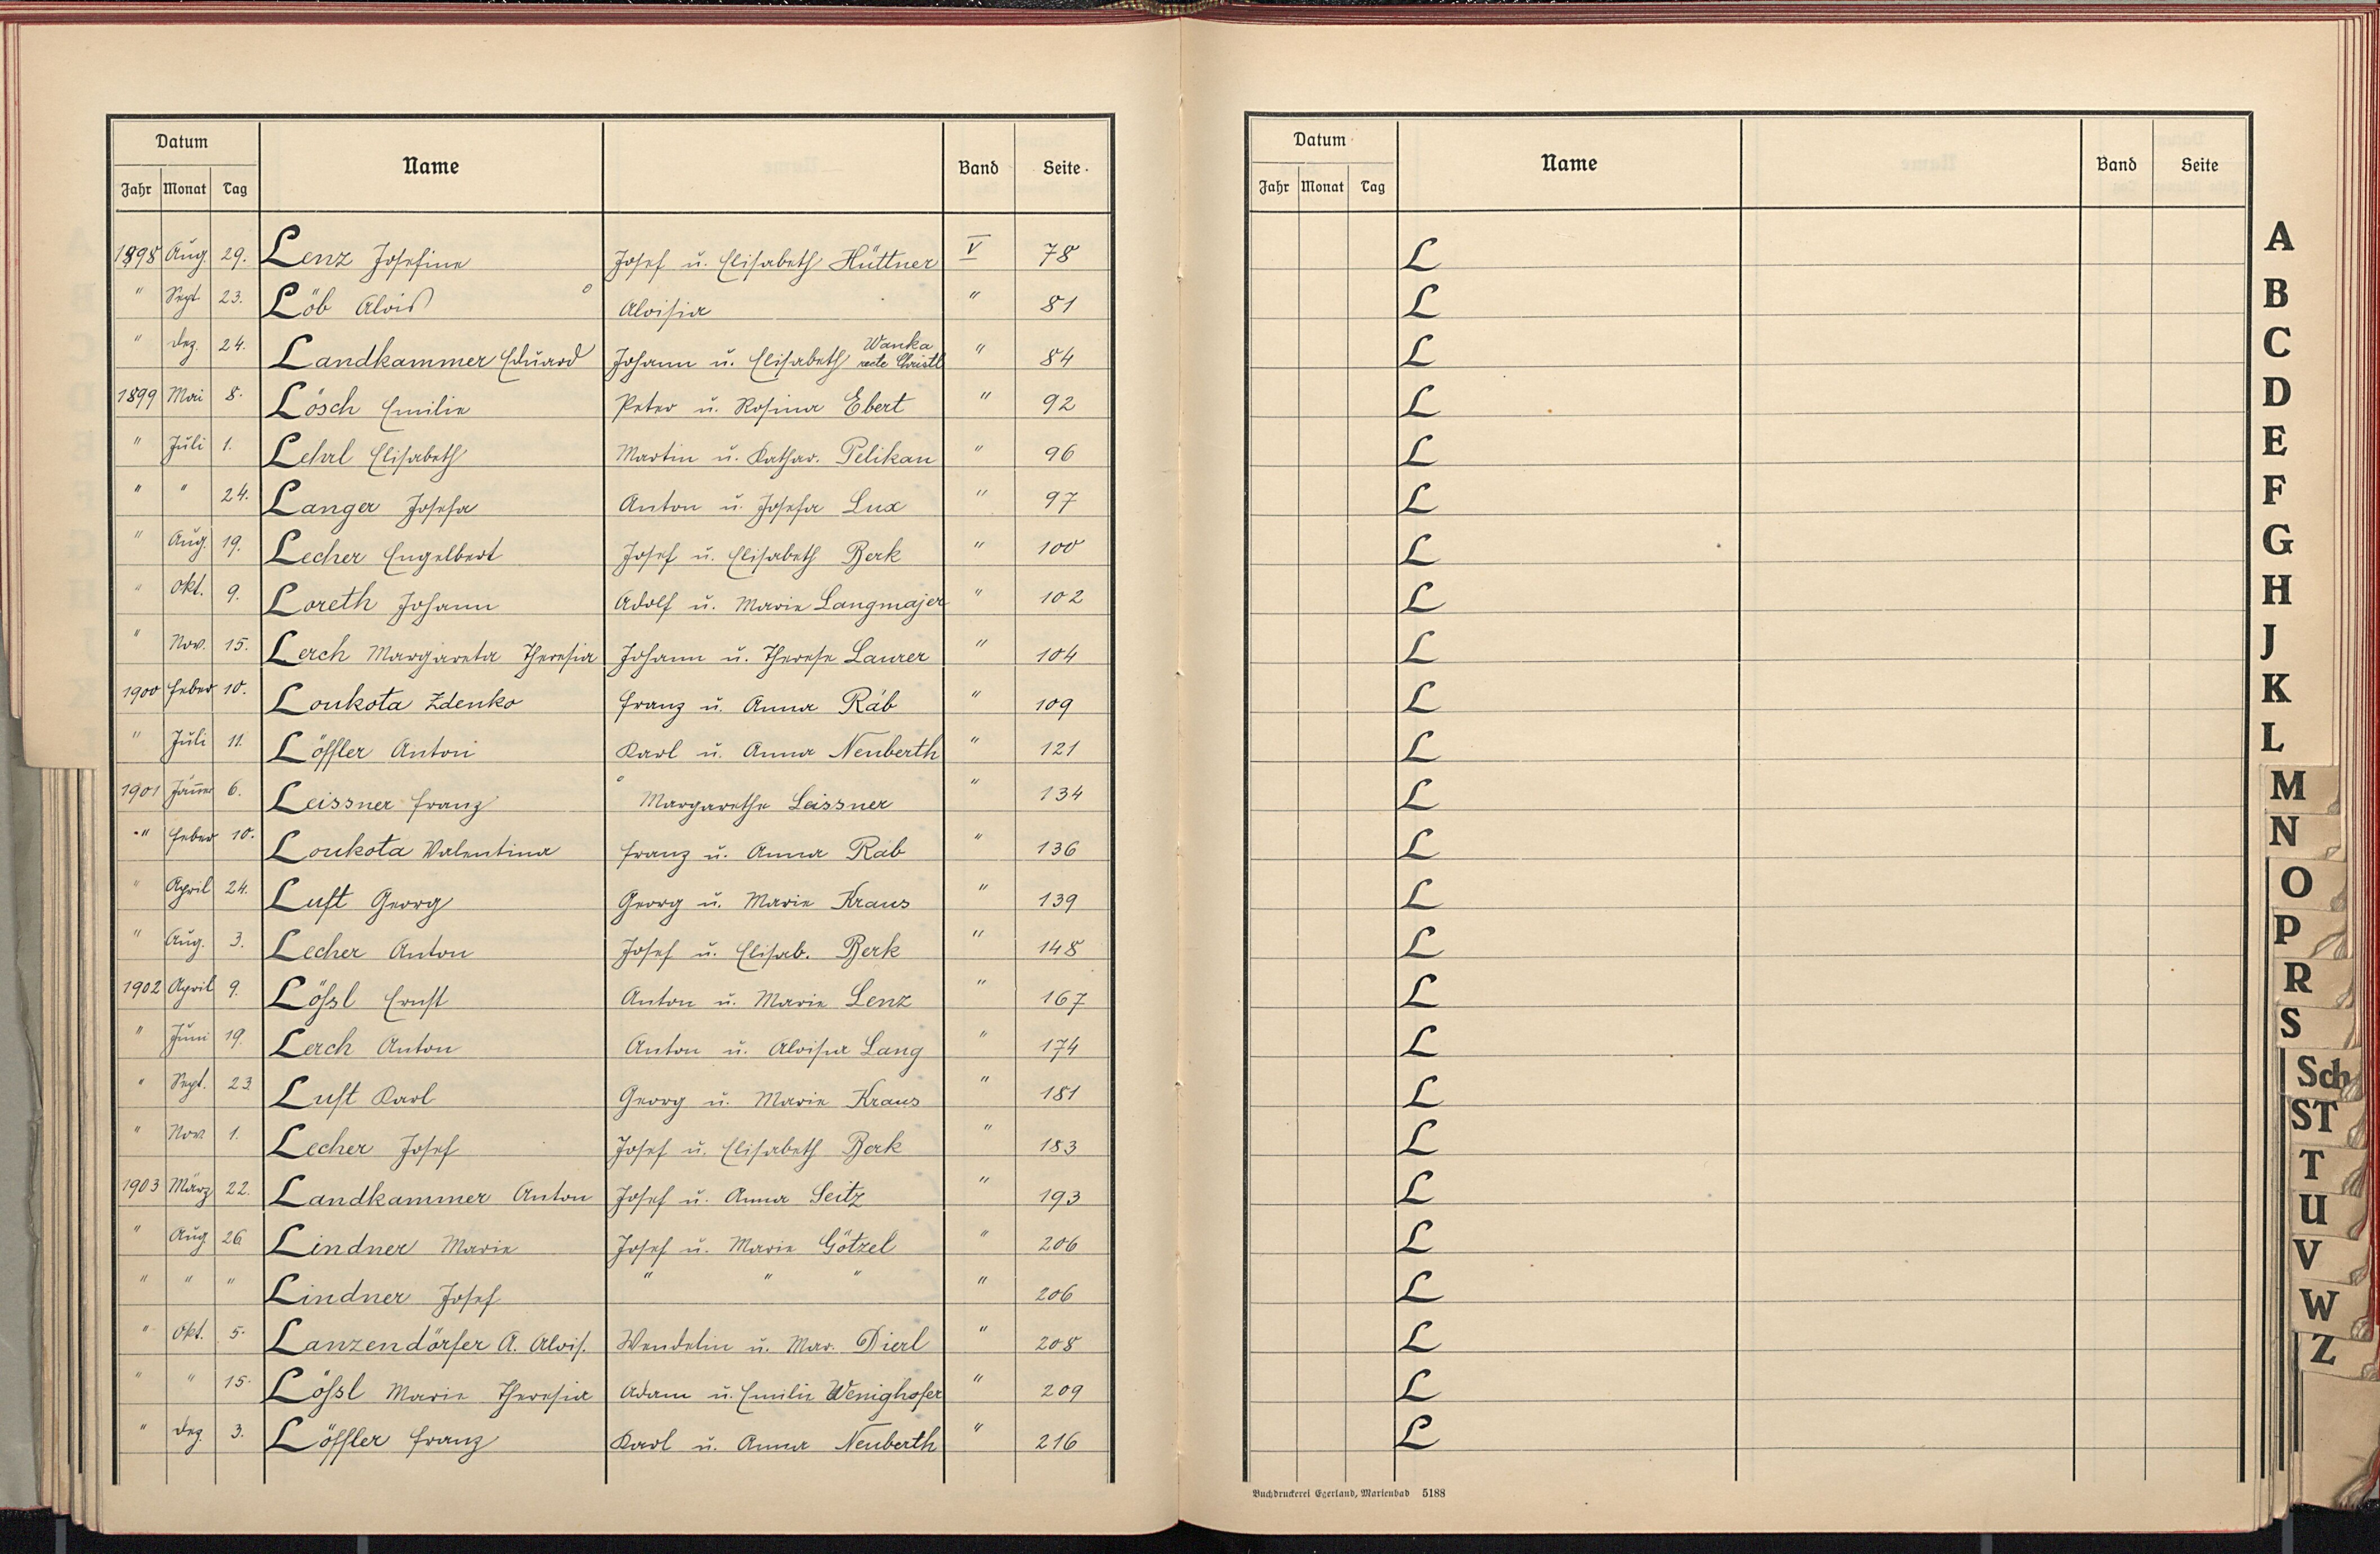 Datum Name Band Seite
Jahr Monat Tag
1898 Aug. 29. Lenz Josefine Josef u. Elisabeth Hüttner V 78
" Sept 23. Löb Alois ° Aloisia " 81
Wanka
" Dez. 24. Landkammer Eduard Johann u. Elisabeth recte Christl " 84
1899 Mai 8. Lösch Emilie Peter u. Rosina Ebert " 92
" Juli 1. Lehrl Elisabeth Martin u. Kathar. Pelikan " 96
" " 24. Langer Josefa Anton u. Josefa Lux " 97
" Aug. 19. Lecher Engelbert Josef u. Elisabeth Berk " 100
" Okt. 9. Loreth Johann Adolf u. Marie Langmajer " 102
" Nov. 15. Lerch Margareta Theresia Johann u. Therese Laurer " 104
1900 Feber 10. Loukota Zdenko Franz u. Anna Ráb " 109
" Juli 11. Löffler Anton Karl u. Anna Neuberth " 121
1901 Jänner 6. Leissner Franz ° Margarethe Leissner " 134
" Feber 10. Loukota Valentina Franz u. Anna Ráb " 136
" April 24. Luft Georg Georg u. Marie Kraus " 139
" Aug. 3. Lecher Anton Josef u. Elisab. Berk " 148
1902 April 9. Lößl Ernst Anton u. Marie Lenz " 167
" Juni 19. Lerch Anton Anton u. Aloisia Lang " 174
" Sept. 23 Luft Karl Georg u. Marie Kraus " 181
" Nov. 1. Lecher Josef Josef u. Elisabeth Berk " 183
1903 März 22. Landkammer Anton Josef u. Anna Seitz " 193
" Aug 26 Lindner Marie Josef u. Marie Götzel " 206
" " " Lindner Josef " " " " 206
" Okt. 5. Lanzendörfer A. Alois. Wendelin u. Mar. Dierl " 208
" " 15. Lößl Marie Theresia Adam u. Emilie Wenighofer " 209
" Dez. 3. Löffler Franz Karl u. Anna Neuberth " 216
Datum Name Band Seite
Jahr Monat Tag
L
L
L
L
L
L
L
L
L
L
L
L
L
L
L
L
L
L
L
L
L
L
L
L
L
Buchdruckerei Egerland, Marienbad 5188
A
B
C
D
E
F
G
H
J
K
L
M
N
O
P
R
S
Sch
ST
T
U
V
W
Z